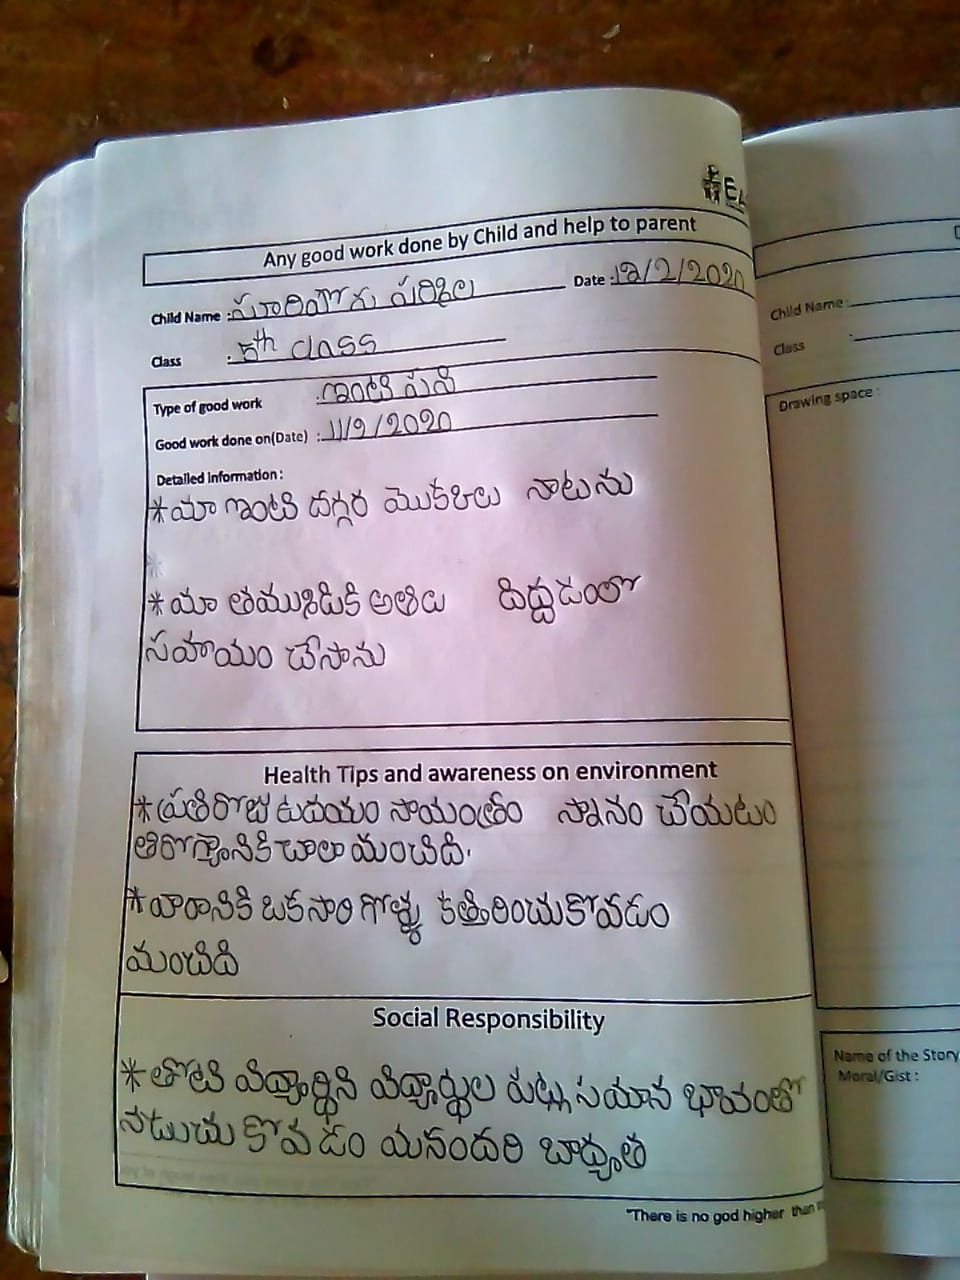 Any good work done by Child and help to parent
Child Name : Date : 12/2/2020
Class : 5th class
Type of good work : ఇంటి పని
Good work done on(Date) : 11/2/2020
Detailed information :
* మా ఇంటి దగ్గర మొకలు నాటను
* మా తముడికి దిద్దడంలో
సహాయం చేసాను
Health Tips and awareness on environment
* ప్రతిరోజు ఉదయం సాయంత్రం స్నానం చేయటం
ఆరోగ్యానికి చాలా మంచిది.
* వారానికి ఒకసారి గోళ్ళు కత్తిరించుకోవడం
మంచిది
Social Responsibility
* తోటి విద్యార్థిని విద్యార్థుల పట్ల సమాన భావంతో
నటుచు కోవడం మనందరి బాధ్యత
"There is no god higher than
Child Name :
Class :
Drawing space :
Name of the Story
Moral/Gist :